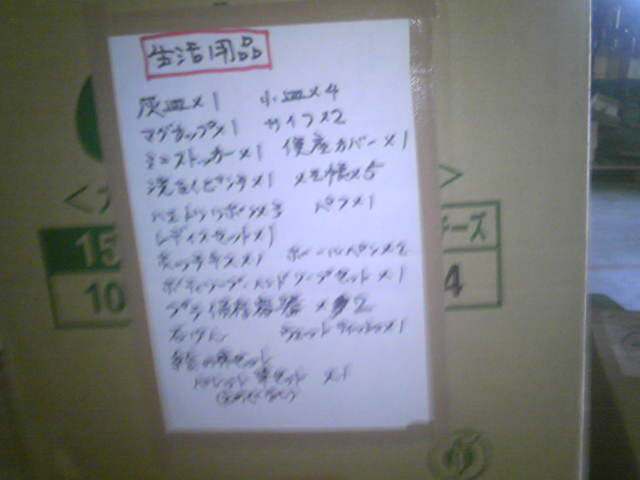 生活用品
灰皿×1 小皿×4
マグカップ×1 サイフ×2
ミニストッカー×1 便座カバー×1
洗たくピンチ×1 メモ帳×5
ハエトリリボン×3 ×1
レディスセット×1
ホッチキス×1 ボールペン×2
ボディソープ・ハンドソープセット×1
プラ保存容器 ×2
石けん ×1
セット
パレット セット ×1
15
10
ーズ
4